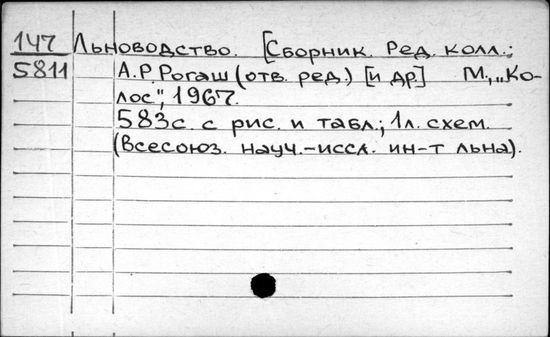 147 Льноводство. [Сборник. Ред. колл.:
5811 А.Р. Рогаш (отв. ред.) [и др.] М., „Ко-
лос", 1967.
583с. с рис. и табл.; 1л. схем.
(Всесоюз. науч.-иссл. ин-т льна).